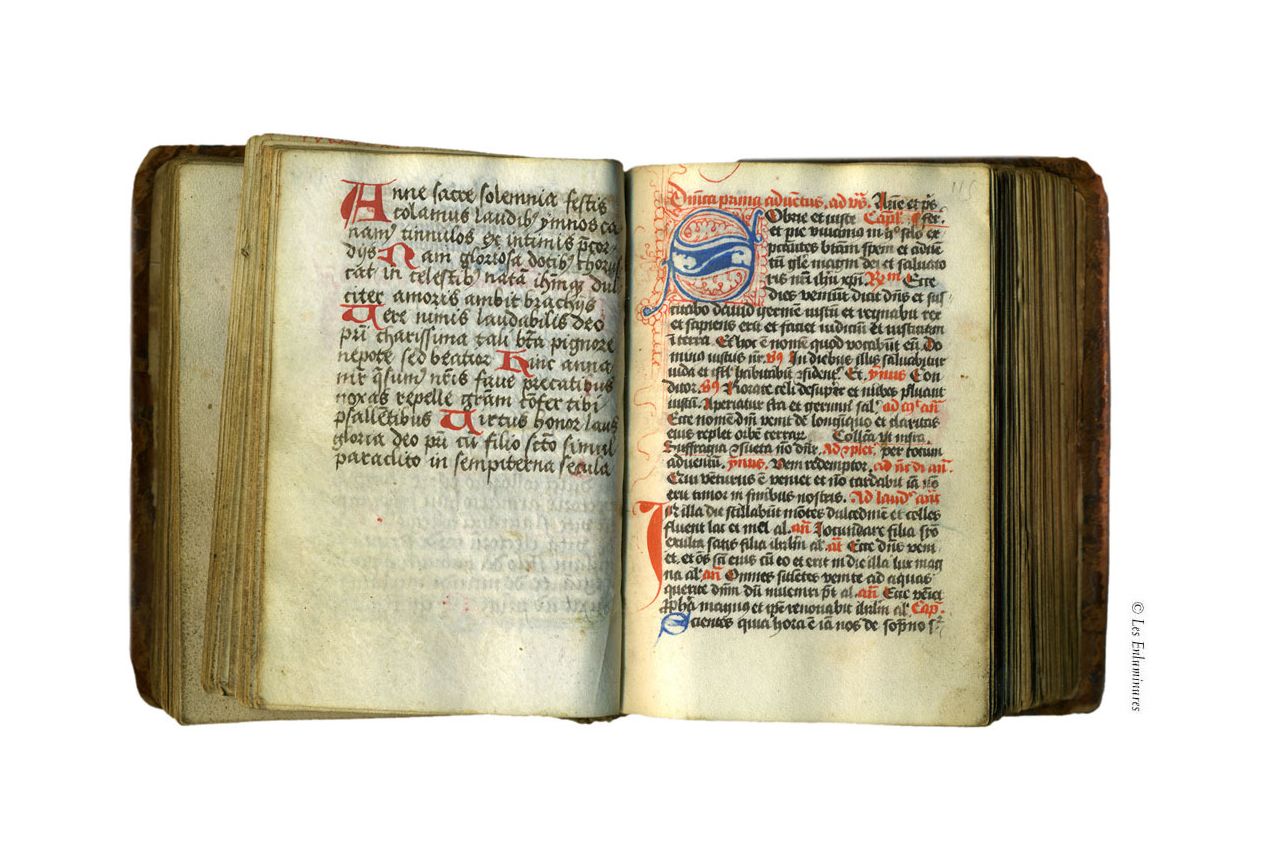 Anne sacre solemnia festis
colamus laudibꝰ ymnos ca
namꝰ tinnulos ex intimis p̄cor
dijs Nam gloriosa dotibꝰ chorus
cat in celestibꝰ natā ihm̄qꝫ dul
citer amoris ambit brachijs
Vere nimis laudabilis deo
pr̄i charissima tali btā pignore
nepote sed beatior Hinc anna
mr̄ q̄sumꝰ nr̄is faue precatibus
noxas repelle gram cōfer tibi
psallentibus Virtus honor laus
gloria deo pr̄i cū filio scto simul
paraclito in sempiterna secula
Dn̄ica prima aduētus, ad vꝭ.
Sobrie et iuste Capl̄.
et pie viuamus in hꝰ sclo ex
pctantes btām spem et adue
tū gl̄e magni dei et saluato
ris nr̄i ihū xpi. Rm̄ Ecce
dies veniūt dicit dn̄s et sus
citabo dauid germē iustū et regnabit rex
et sapiens erit et faciet iudiciū et iusticiam
ī terra. Et hoc ē nomē quod vocabūt eū. Do
minus iustus nr̄. In diebus illis saluabitur
iuda et isrl̄ habitabit ꝯfident̄. Et. ymnus Con
ditor. Rorate celi desuper et nubes pluant
iustū. Aperiatur tr̄a et germīn̄ sal.
Ecce nomē dn̄i venit de longinquo et claritas
eius replet orbē terrarꝫ Collc̄a vt infra.
Suffragia ꝯsueta nō dn̄r. per totum
aduentū. ymus. Veni redemptor.
Ecce venturus ē veniet et nō tardabit iā nō
erit timor in finibus nostris. Ad laud
In illa die stillabūt mōtes dulcedinē et colles
fluent lac et mel al. an̄ Iocundare filia syō
exulta satis filia ihrlm̄ al. an̄ Ecce dn̄s veni
et, et oēs sc̄i eius cū eo et erit in die illa lux mag
na al. an̄ Omnes sicietes venite ad aquas
querite dn̄m dū inueniri pt̄ al. an̄ Ecce veīet
ꝓpha magnus et ip̄e renouabit ihrlm̄ al. Cap.
Scientes quia hora ē iā nos de sop̄no
© Les Enluminures